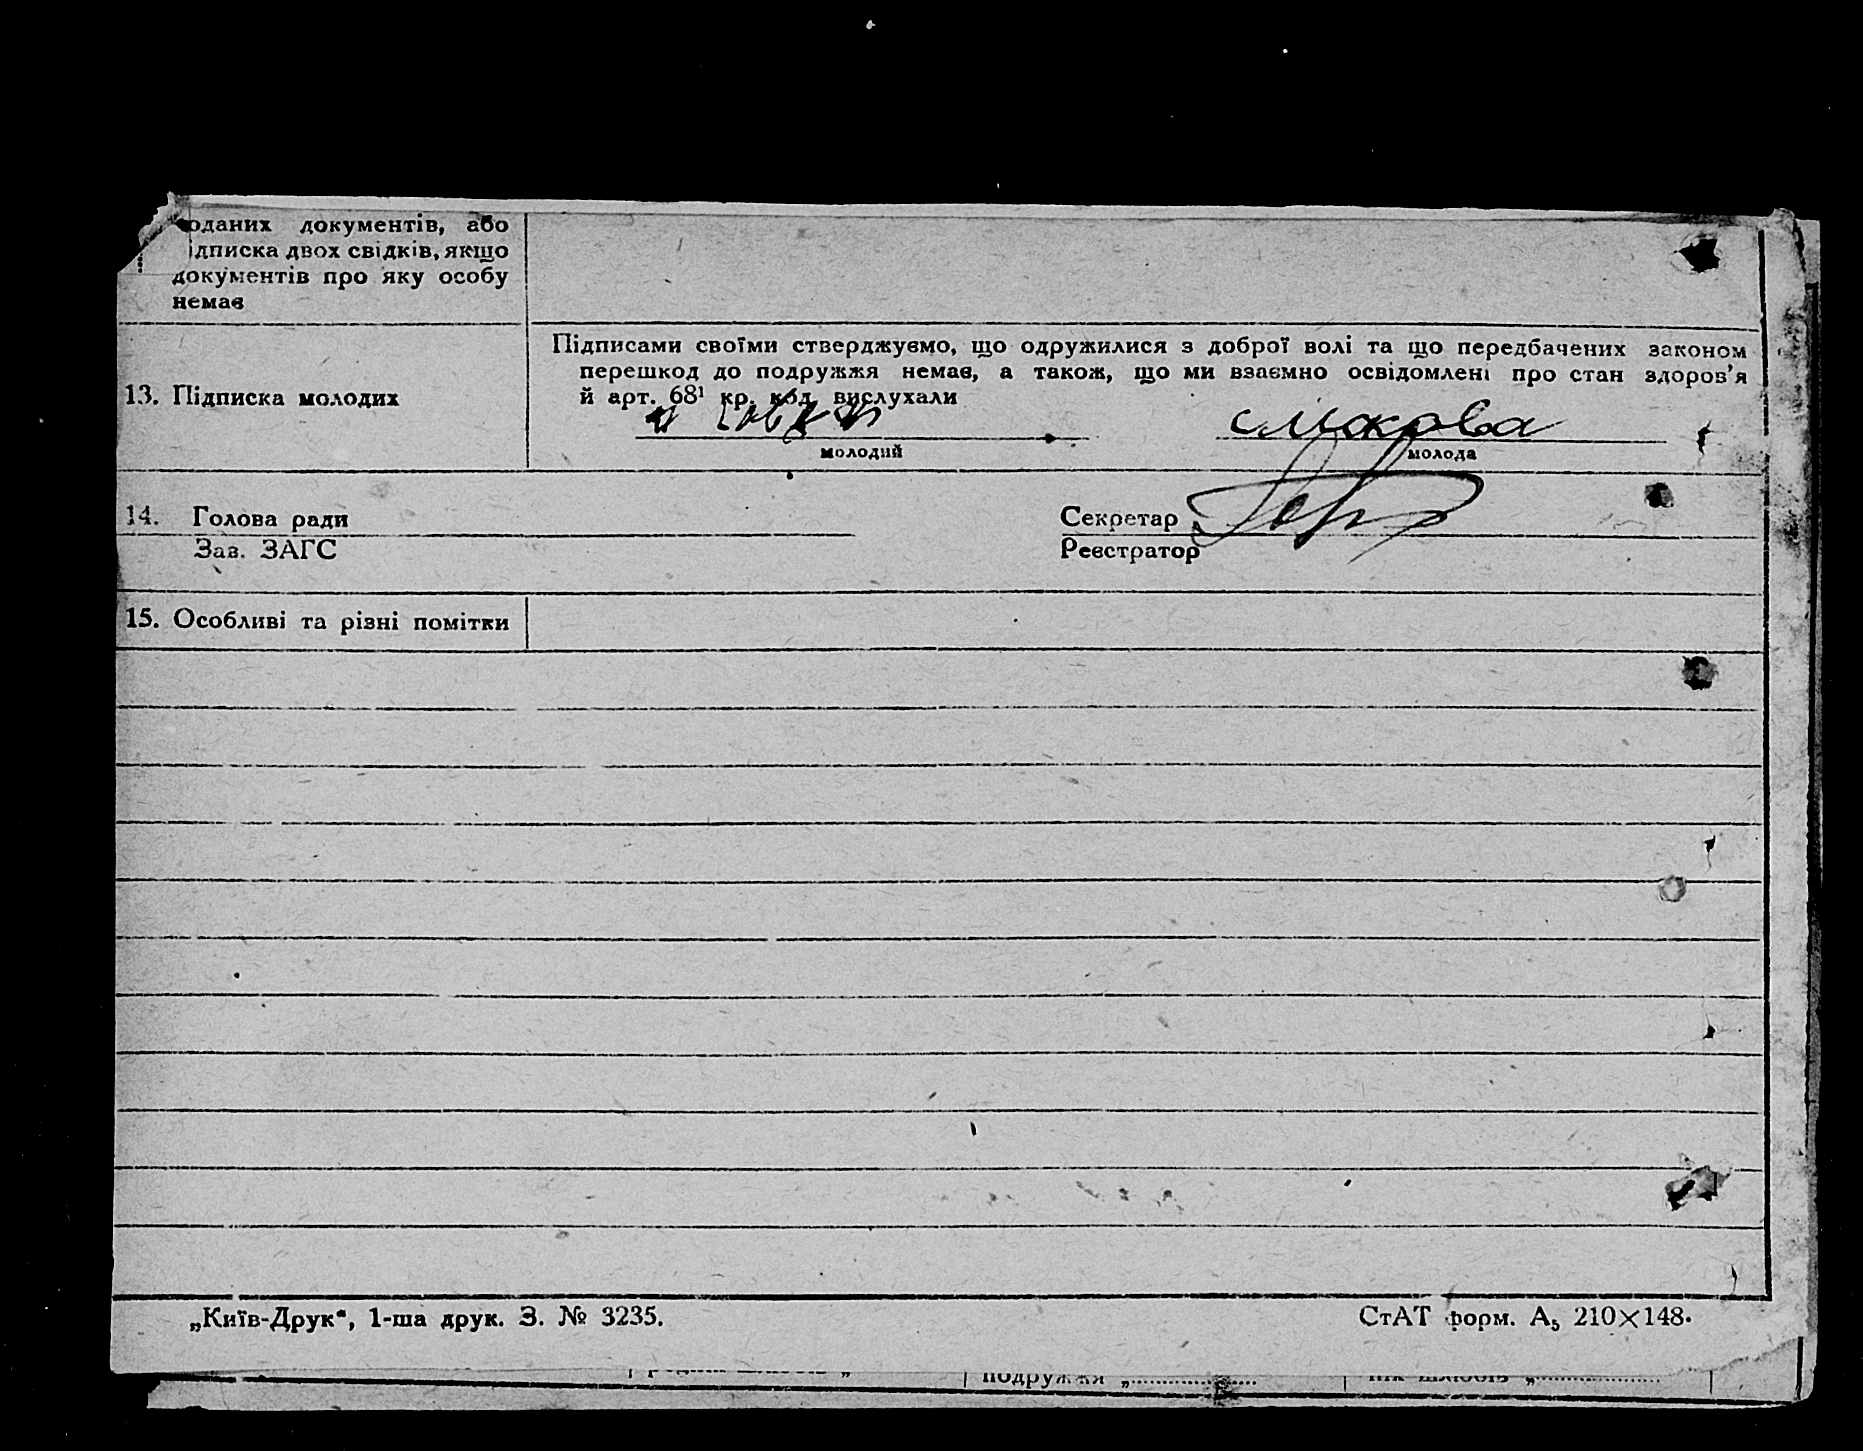 оданих документів, або
ідписка двох свідків, якщо
документів про яку особу
немає
13. Підписка молодих
Підписами своїми стверджуємо, що одружилися з доброї волі та що передбачених законом
перешкод до подружжя немає, а також, що ми взаємно освідомлені про стан здоров'я
й арт. 68¹ кр. код. вислухали
молодий
молода
14. Голова ради
Зав. ЗАГС
Секретар
Реєстратор
15. Особливі та різні помітки
„Київ-Друк“, 1-ша друк. З. № 3235.
СтАТ форм. А₅ 210×148.
подружжя „